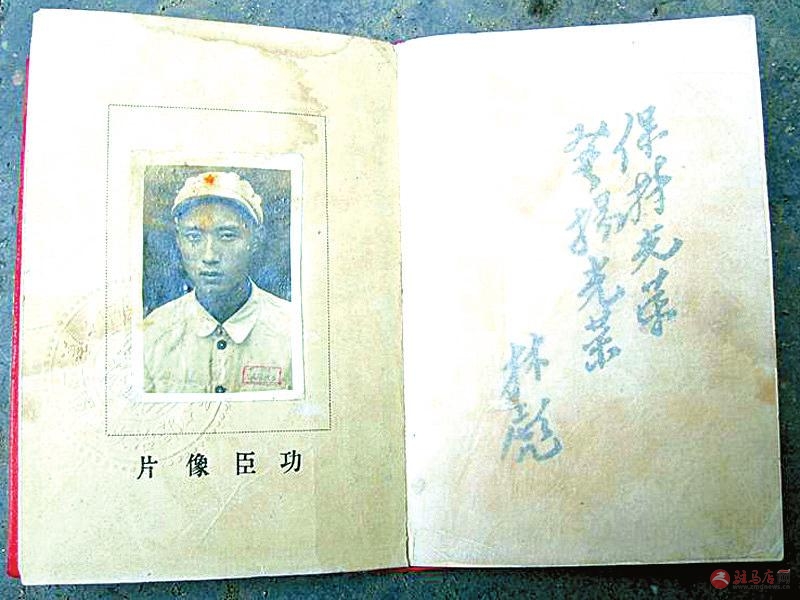 功臣像片
保持光荣
發揚光荣
林彪
驻马店网